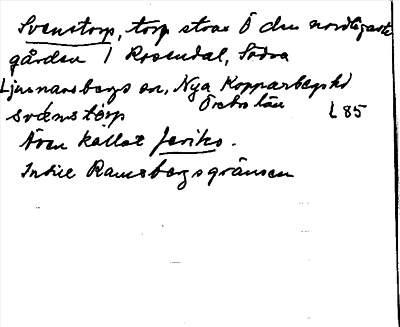 Svenstorp, torp strax Ö den nordligaste
gården i Rosendal, Södra
Ljusnarsbergs sn, Nya Kopparbergs hd
Örebro län
svénstòrp L 85
Även kallat Jeriko.
Intill Ramsbergsgränsen